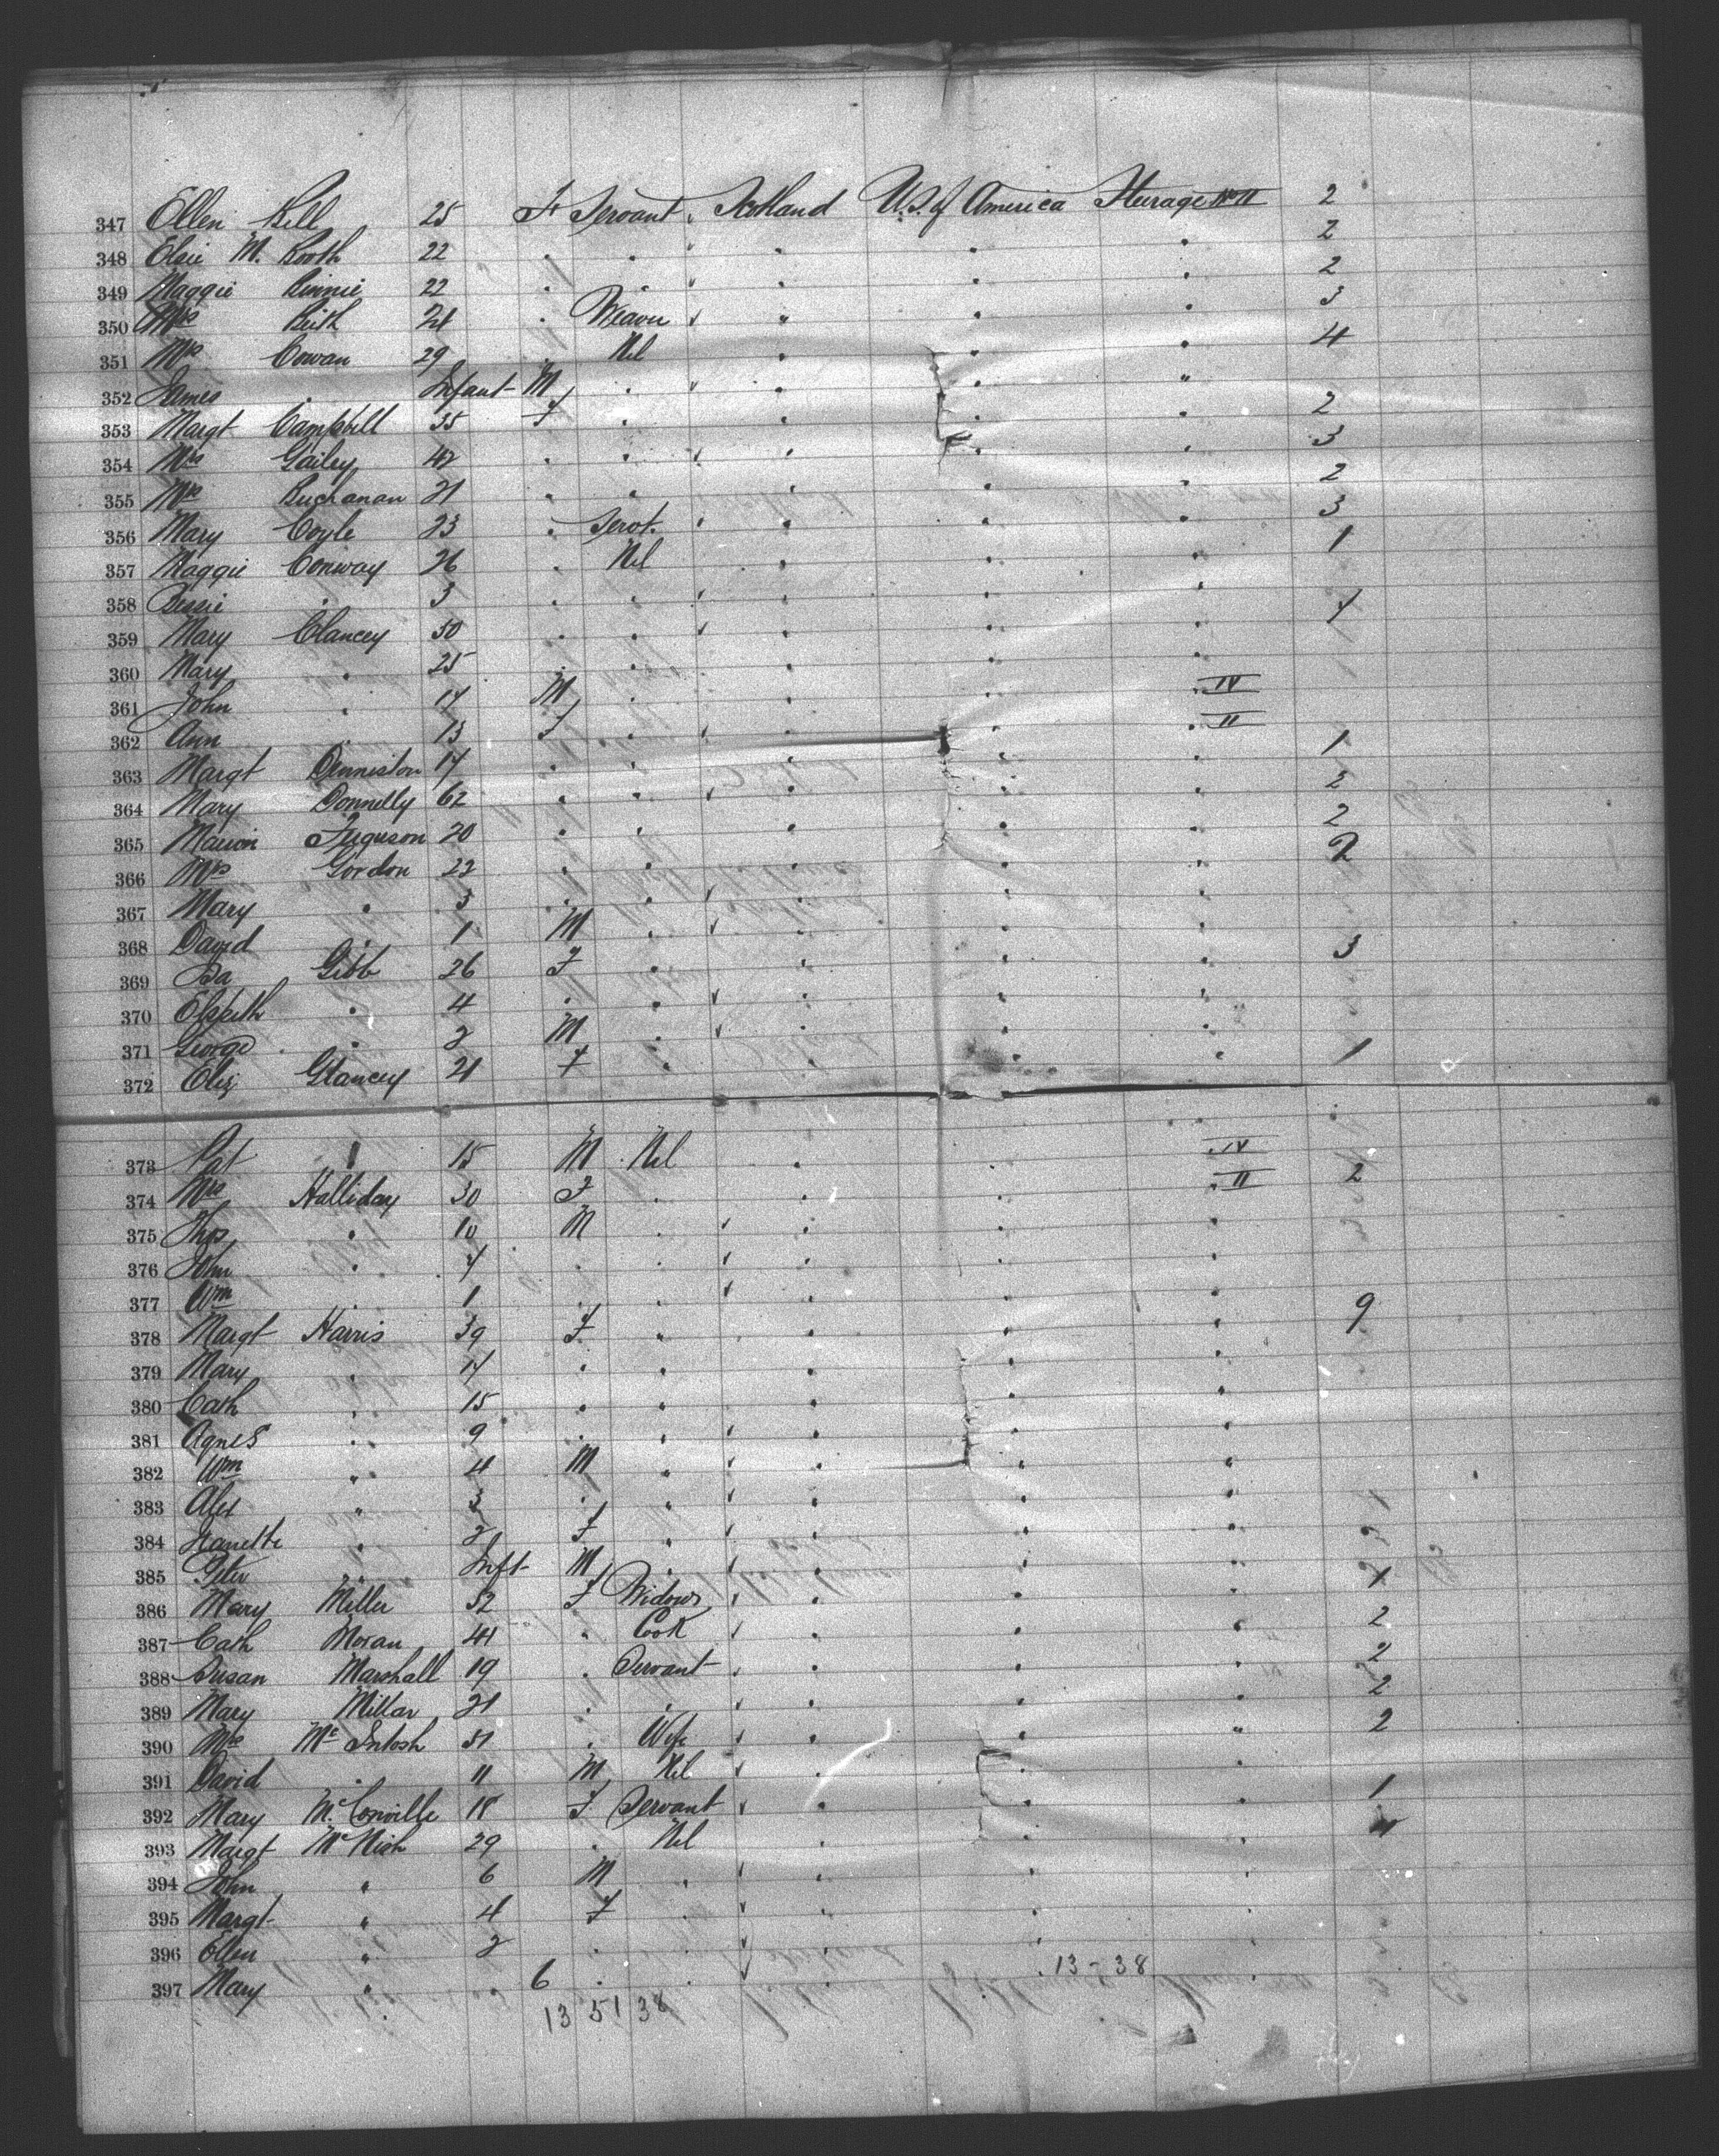 347 Ellen Bell 25 F Servant Scotland U.S. of America Steerage No II 2
348 Elsie M. Booth 22 " " " " " 2
349 Maggie Binnie 22 " " " " " 2
350 Mrs Beith 24 " Weaver " " " 3
351 Mrs Cowan 29 " Nil " " " 4
352 James " Infant M " " " "
353 Margt Campbell 35 F " " " " 2
354 Mrs Gailey 42 " " " " " 3
355 Mrs Buchanan 21 " " " " " 2
356 Mary Coyle 23 " Servt. " " " 3
357 Maggie Conway 26 " Nil " " " 1
358 Bessie " 3 " " " " "
359 Mary Clancey 50 " " " " " 4
360 Mary " 25 " " " " "
361 John " 17 M " " " " IV
362 Ann " 13 F " " " " II
363 Margt Denniston 17 " " " " " 1
364 Mary Donnelly 62 " " " " " 2
365 Marion Ferguson 20 " " " " " 2
366 Mrs Gordon 22 " " " " " 2
367 Mary " 3 " " " " "
368 David " 1 M " " " "
369 Gibb 26 F " " " " 3
370 Elspeth " 4 " " " " "
371 George " 2 M " " " "
372 Eliz Glancey 21 F " " " " 1
373 Pat " 15 M Nil " " " IV
374 Mrs Halliday 30 F " " " " II 2
375 Thos " 10 M " " " "
376 John " 4 " " " " "
377 Wm " 1 " " " " "
378 Margt Harris 39 F " " " " 9
379 Mary " 17 " " " " "
380 Cath " 15 " " " " "
381 Agnes " 9 " " " " "
382 Wm " 4 M " " " "
383 Alex " 3 " " " " "
384 Janette " 2 F " " " "
385 Peter " Inft M " " " "
386 Mary Miller 52 F Widow " " " 1
387 Cath Moran 41 " Cook " " " 2
388 Susan Marshall 19 " Servant " " " 2
389 Mary Millar 21 " " " " " 2
390 Mrs McIntosh 51 " Wife " " " 2
391 David " 11 M Nil " " "
392 Mary McConville 18 F Servant " " " 1
393 Margt McNish 29 " Nil " " "
394 John " 6 M " " " "
395 Margt " 4 F " " " "
396 Ellen " 2 " " " " "
397 Mary " 6 " " " 13-38
13 51 38